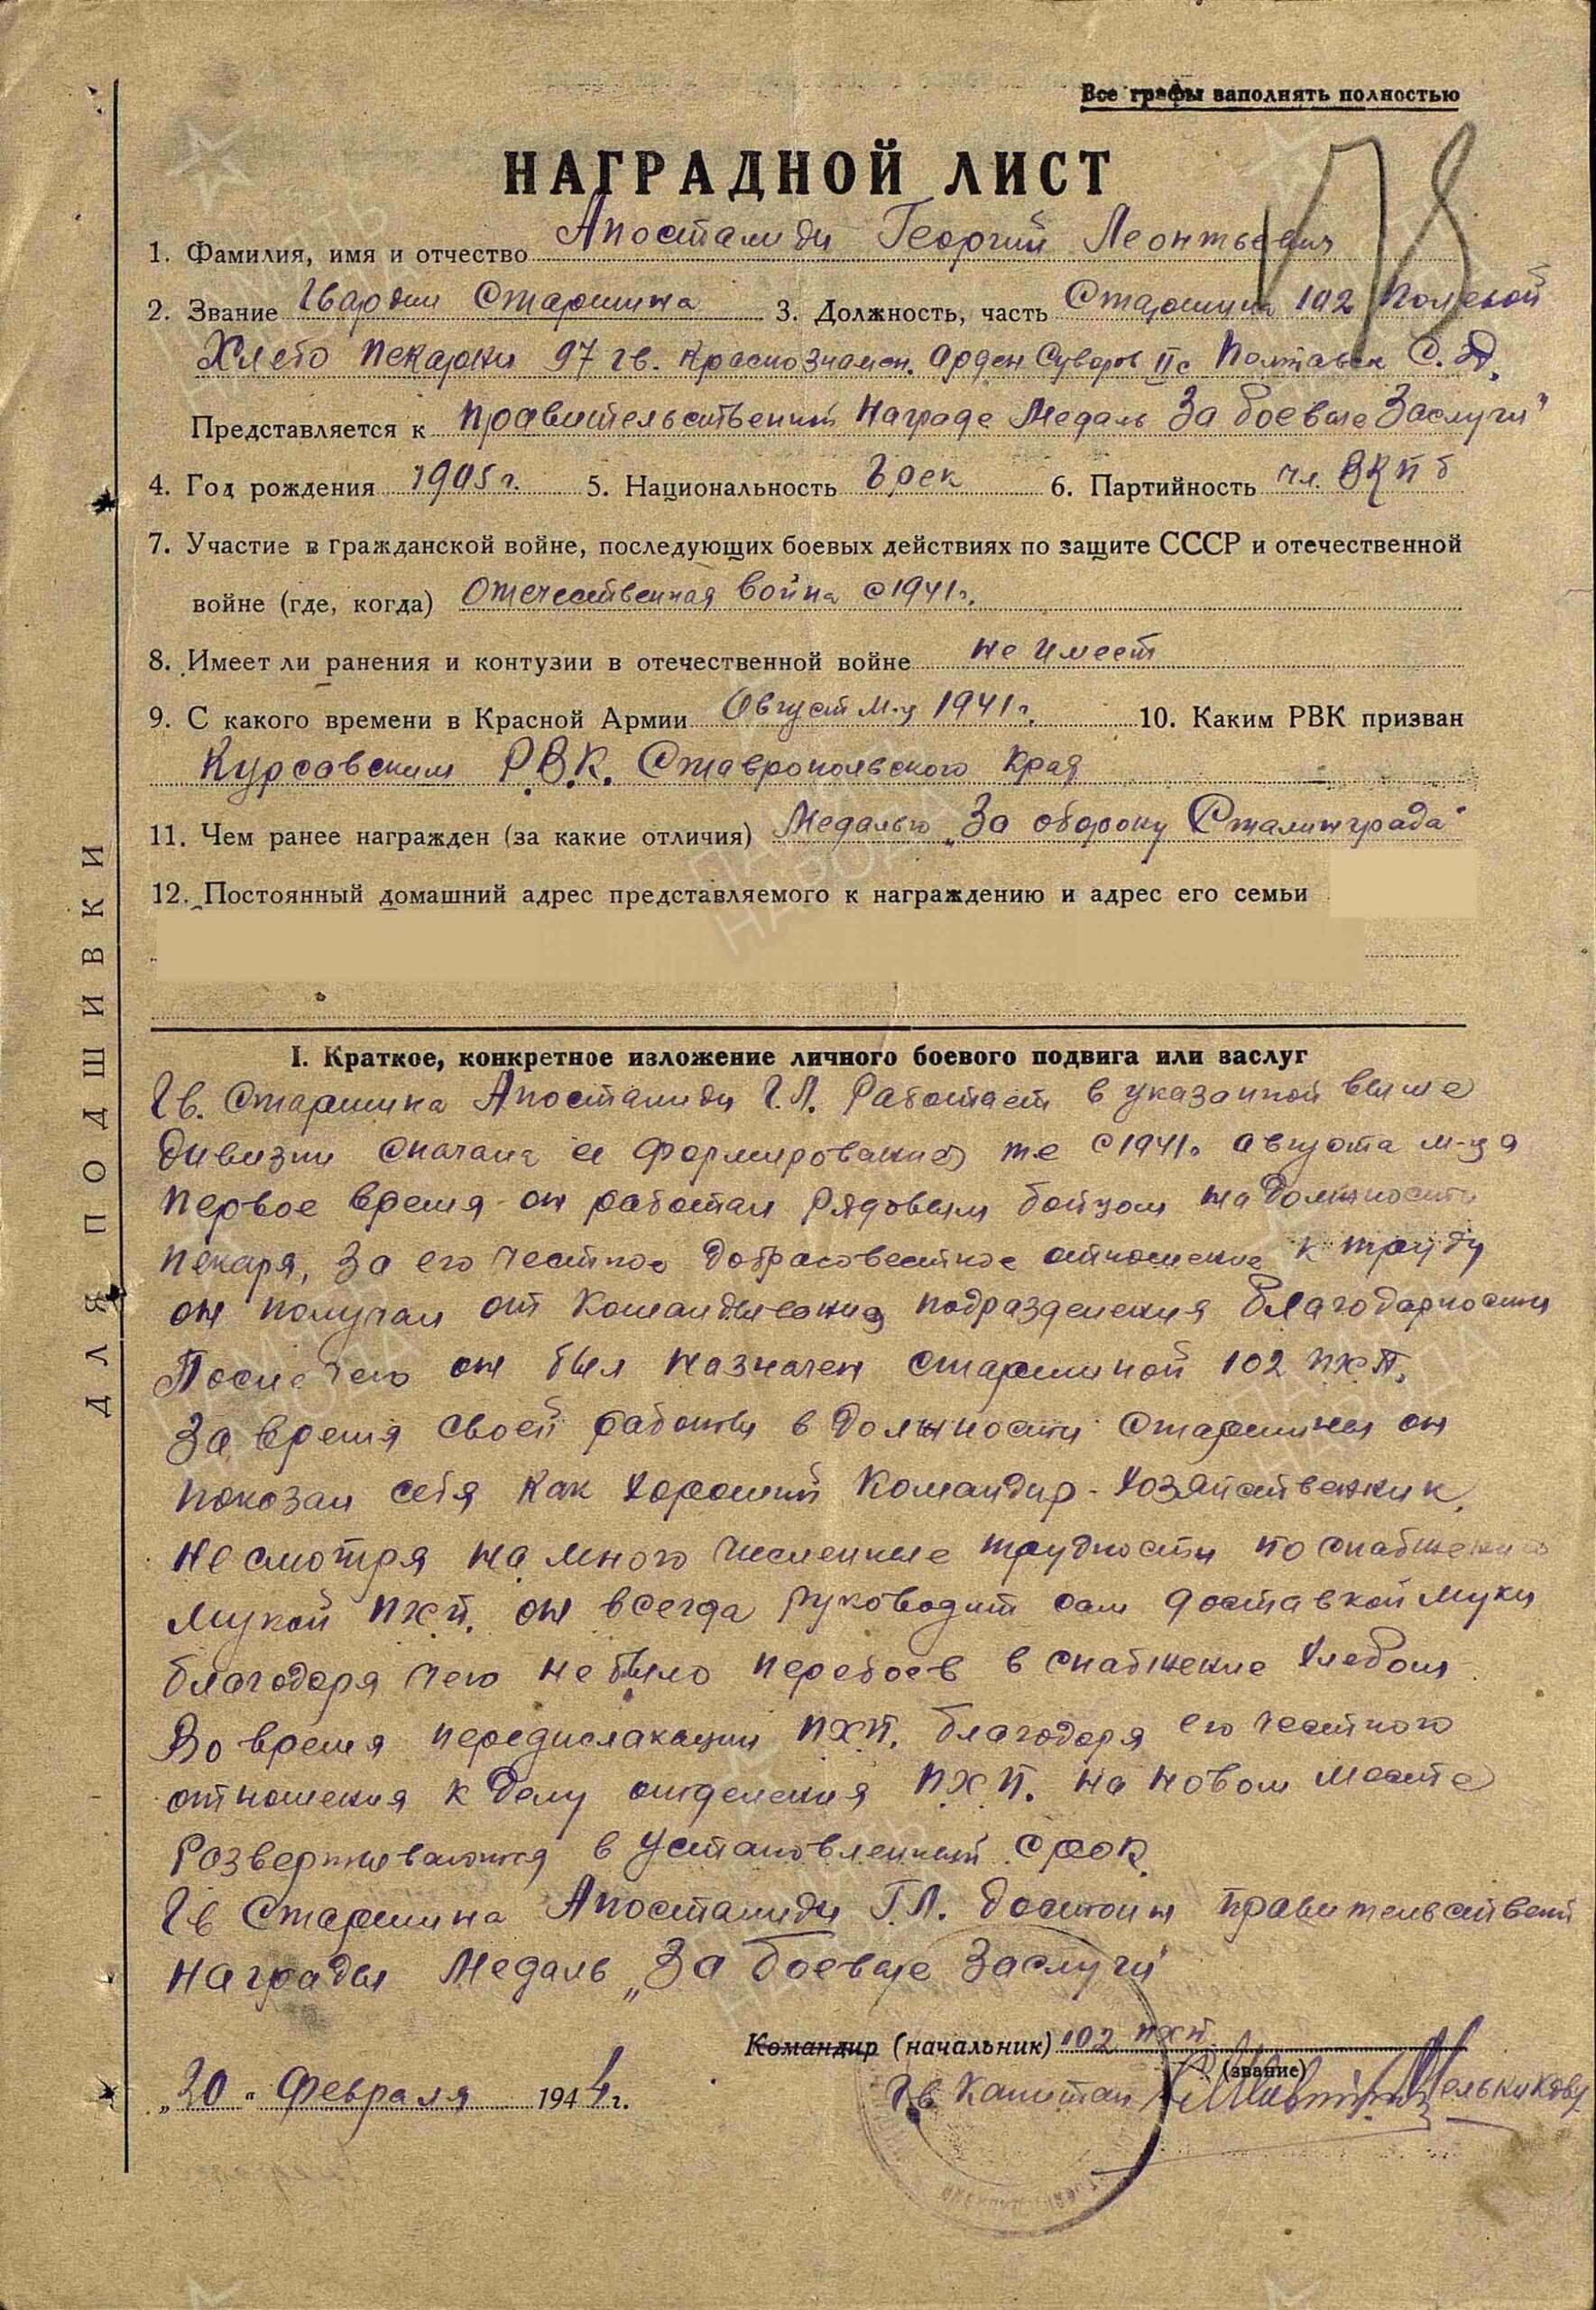 Все графы заполнять полностью
НАГРАДНОЙ ЛИСТ
178
1. Фамилия, имя и отчество Апосталиди Георгий Леонтьевич
2. Звание Гвардии Старшина 3. Должность, часть Старшина 102 Полевой
Хлебо пекарни 97 гв. Краснознамен. Орден Суворов II с Полтавск С.Д.
Представляется к правительственной Награде Медаль За боевые Заслуги"
4. Год рождения 1905 г. 5. Национальность Грек 6. Партийность чл. ВКПб
7. Участие в гражданской войне, последующих боевых действиях по защите СССР и отечественной
войне (где, когда) Отечественная война с 1941 г.
8. Имеет ли ранения и контузии в отечественной войне не имеет
9. С какого времени в Красной Армии Август м-ц 1941 г. 10. Каким РВК призван
Курсавским Р.В.К. Ставропольского Края
11. Чем ранее награжден (за какие отличия) Медалью „За оборону Сталинграда"
12. Постоянный домашний адрес представляемого к награждению и адрес его семьи
I. Краткое, конкретное изложение личного боевого подвига или заслуг
Гв. Старшина Апосталиди Г.Л. Работает в указанной выше
дивизии сначала ее формирования те с 1941 г. августа м-ца
Первое время он работал рядовым бойцом на должности
пекаря, За его честное добрасовестное отношение к труду
он получал от Командывания подразделения благодарности
После чего он был назначен старшиной 102 ПХП.
За время своей работы в должности старшины он
показал себя как хороший Командир-хозяйственник.
Не смотря на много численные трудности по снабжению
мукой ПХП. он всегда руководит сам доставкой муки
благодаря чего не было перебоев в снабжение хлебом
Во время передислакации ПХП. благодаря его честного
отношения к делу отделения ПХП. на новом месте
Развертываются в установленный срок.
Гв Старшина Апосталиди Г.Л. достоин правительствен
награды Медаль „За боевые Заслуги"
Командир (начальник) 102 ПХП
(звание)
Гв Капитан Мельников
„20" Февраля 1944 г.
ДЛЯ ПОДШИВКИ
ПАМЯТЬ НАРОДА